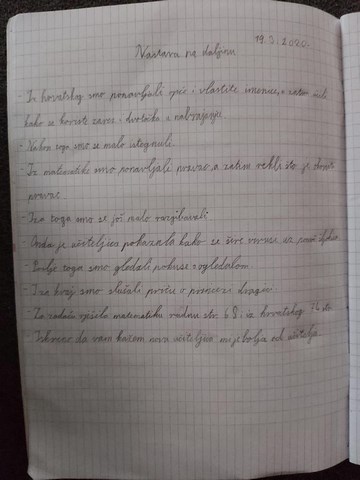 19.3.2020.
Nastava na daljinu
- Iz hrvatskog smo ponavljali opće i vlastite imenice, a zatim
kako se koriste zarez i dvotočka u nabrajanju.
- Nakon toga smo se malo istegnuli.
- Iz matematike smo ponavljali pravac, a zatim rekli što je
pravac.
- Iza toga smo se još malo razgibavali.
- Onda je učiteljica pokazala kako se šire virusi uz pomoć
- Poslije toga smo gledali pokuse s ogledalom.
- I za kraj smo slušali priču o princezi
- Za zadaću riješite matematiku radnu str. 68, iz hrvatskog 76 str.
- Iskreno da vam kažem nova učiteljica mi je bolja od učitelja.